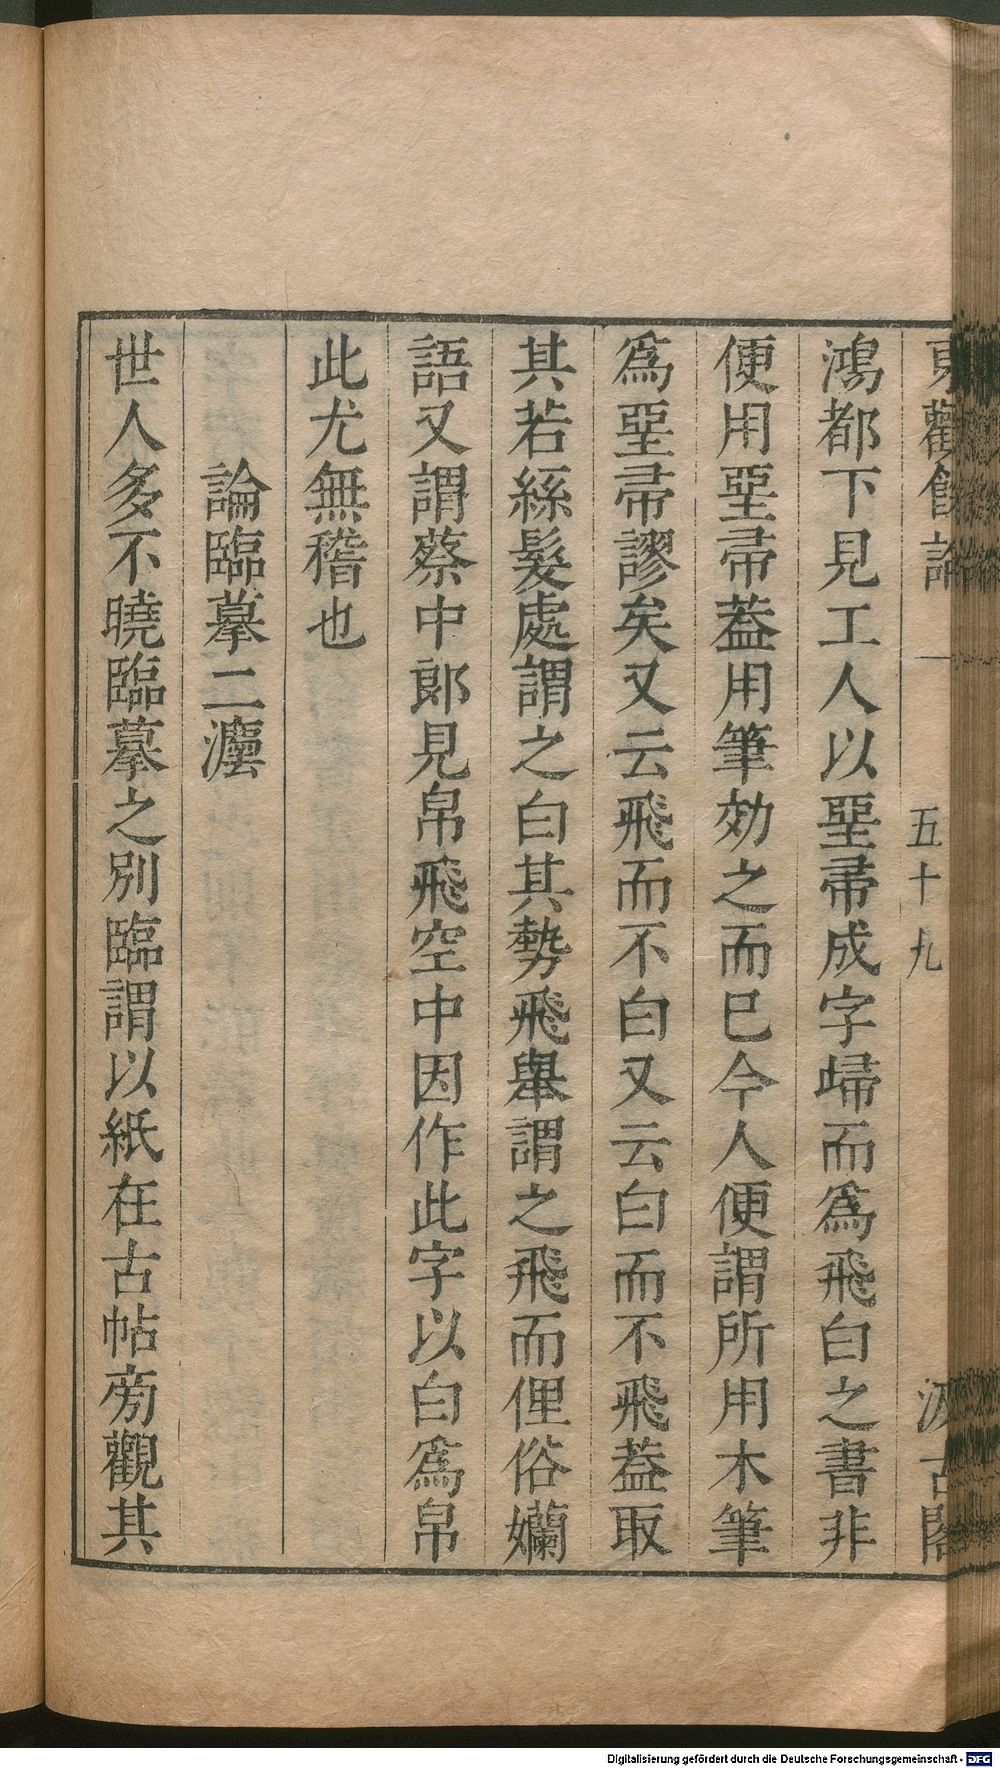 東觀餘論 一 五十九 汲古閣
鴻都下見工人以堊帚成字歸而爲飛白之書非
便用堊帚葢用筆効之而巳今人便謂所用木筆
爲堊帚謬矣又云飛而不白又云白而不飛葢取
其若絲髮處謂之白其勢飛舉謂之飛而俚俗嬾
語又謂蔡中郎見帛飛空中因作此字以白爲帛
此尤無稽也
論臨摹二灋
世人多不曉臨摹之別臨謂以紙在古帖旁觀其
Digitalisierung gefördert durch die Deutsche Forschungsgemeinschaft - DFG